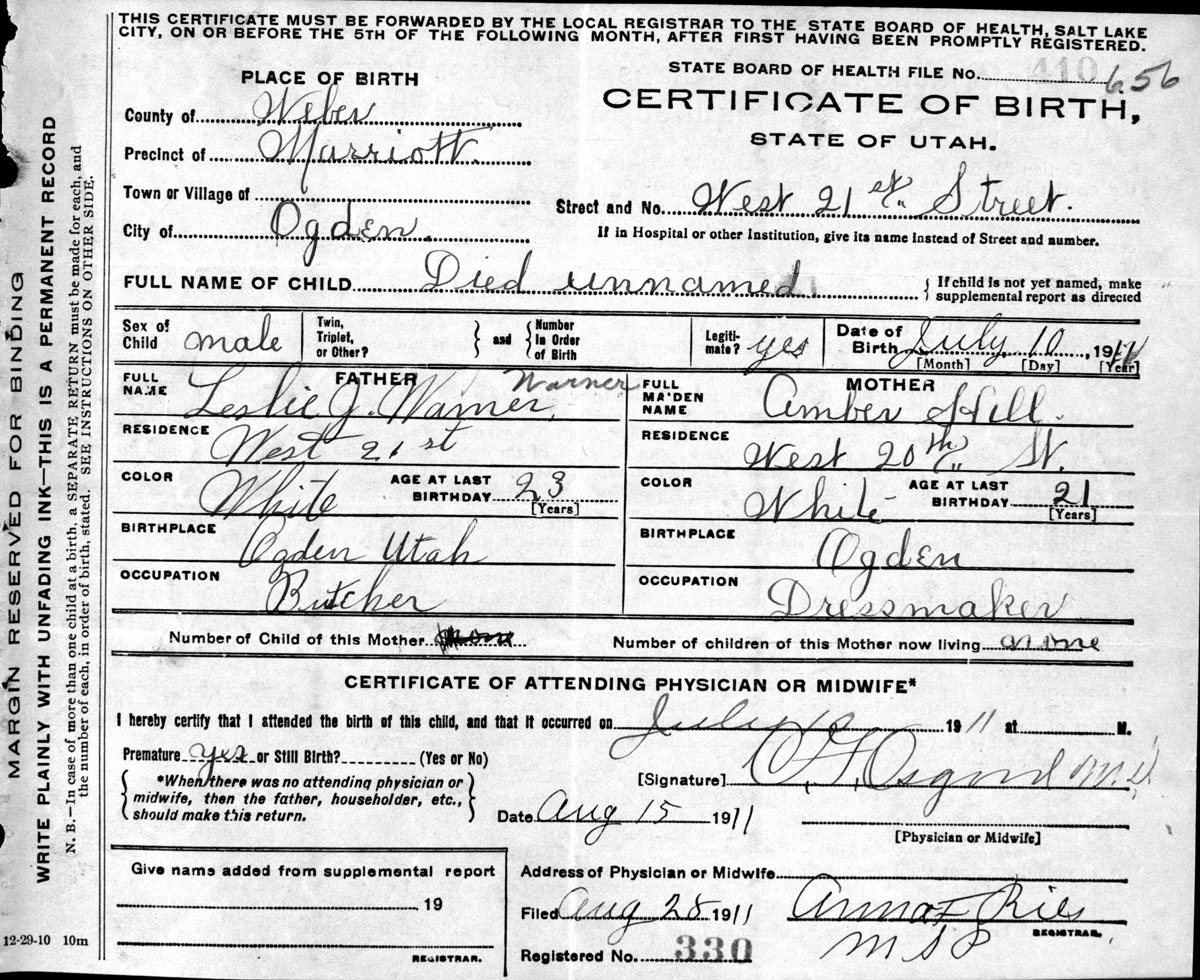 THIS CERTIFICATE MUST BE FORWARDED BY THE LOCAL REGISTRAR TO THE STATE BOARD OF HEALTH, SALT LAKE
CITY, ON OR BEFORE THE 5TH OF THE FOLLOWING MONTH, AFTER FIRST HAVING BEEN PROMPTLY REGISTERED.
STATE BOARD OF HEALTH FILE No. 410 656
PLACE OF BIRTH
CERTIFICATE OF BIRTH,
STATE OF UTAH.
County of Weber
Precinct of Marriott
Town or Village of
Street and No. West 21 st Street.
City of Ogden.
If in Hospital or other Institution, give its name instead of Street and number.
FULL NAME OF CHILD Died unnamed.
If child is not yet named, make
supplemental report as directed
Sex of Child male
Twin, Triplet, or Other?
and
Number In Order of Birth
Legiti-mate? yes
Date of Birth July 10, 1911
[Month] [Day] [Year]
FATHER
FULL NAME Leslie J. Warner,
Warner
RESIDENCE West 21 st
COLOR White
AGE AT LAST BIRTHDAY 23
[Years]
BIRTHPLACE Ogden Utah
OCCUPATION Butcher
MOTHER
FULL MAIDEN NAME Amber Hill.
RESIDENCE West 20th St.
COLOR White
AGE AT LAST BIRTHDAY 21
[Years]
BIRTHPLACE Ogden
OCCUPATION Dressmaker
Number of Child of this Mother
Number of children of this Mother now living none
CERTIFICATE OF ATTENDING PHYSICIAN OR MIDWIFE*
I hereby certify that I attended the birth of this child, and that it occurred on July 10 1911 at M.
Premature yes or Still Birth? (Yes or No)
*When there was no attending physician or
midwife, then the father, householder, etc.,
should make this return.
[Signature] Osgood M.D.
Date Aug 15 1911
[Physician or Midwife]
Give name added from supplemental report
19
REGISTRAR.
Address of Physician or Midwife
Filed Aug 28 1911
Anna F Ries
REGISTRAR.
Registered No. 330
MARGIN RESERVED FOR BINDING
WRITE PLAINLY WITH UNFADING INK—THIS IS A PERMANENT RECORD
N. B.—In case of more than one child at a birth, a SEPARATE RETURN must be made for each, and
the number of each, in order of birth, stated. SEE INSTRUCTIONS ON OTHER SIDE.
12-29-10 10m